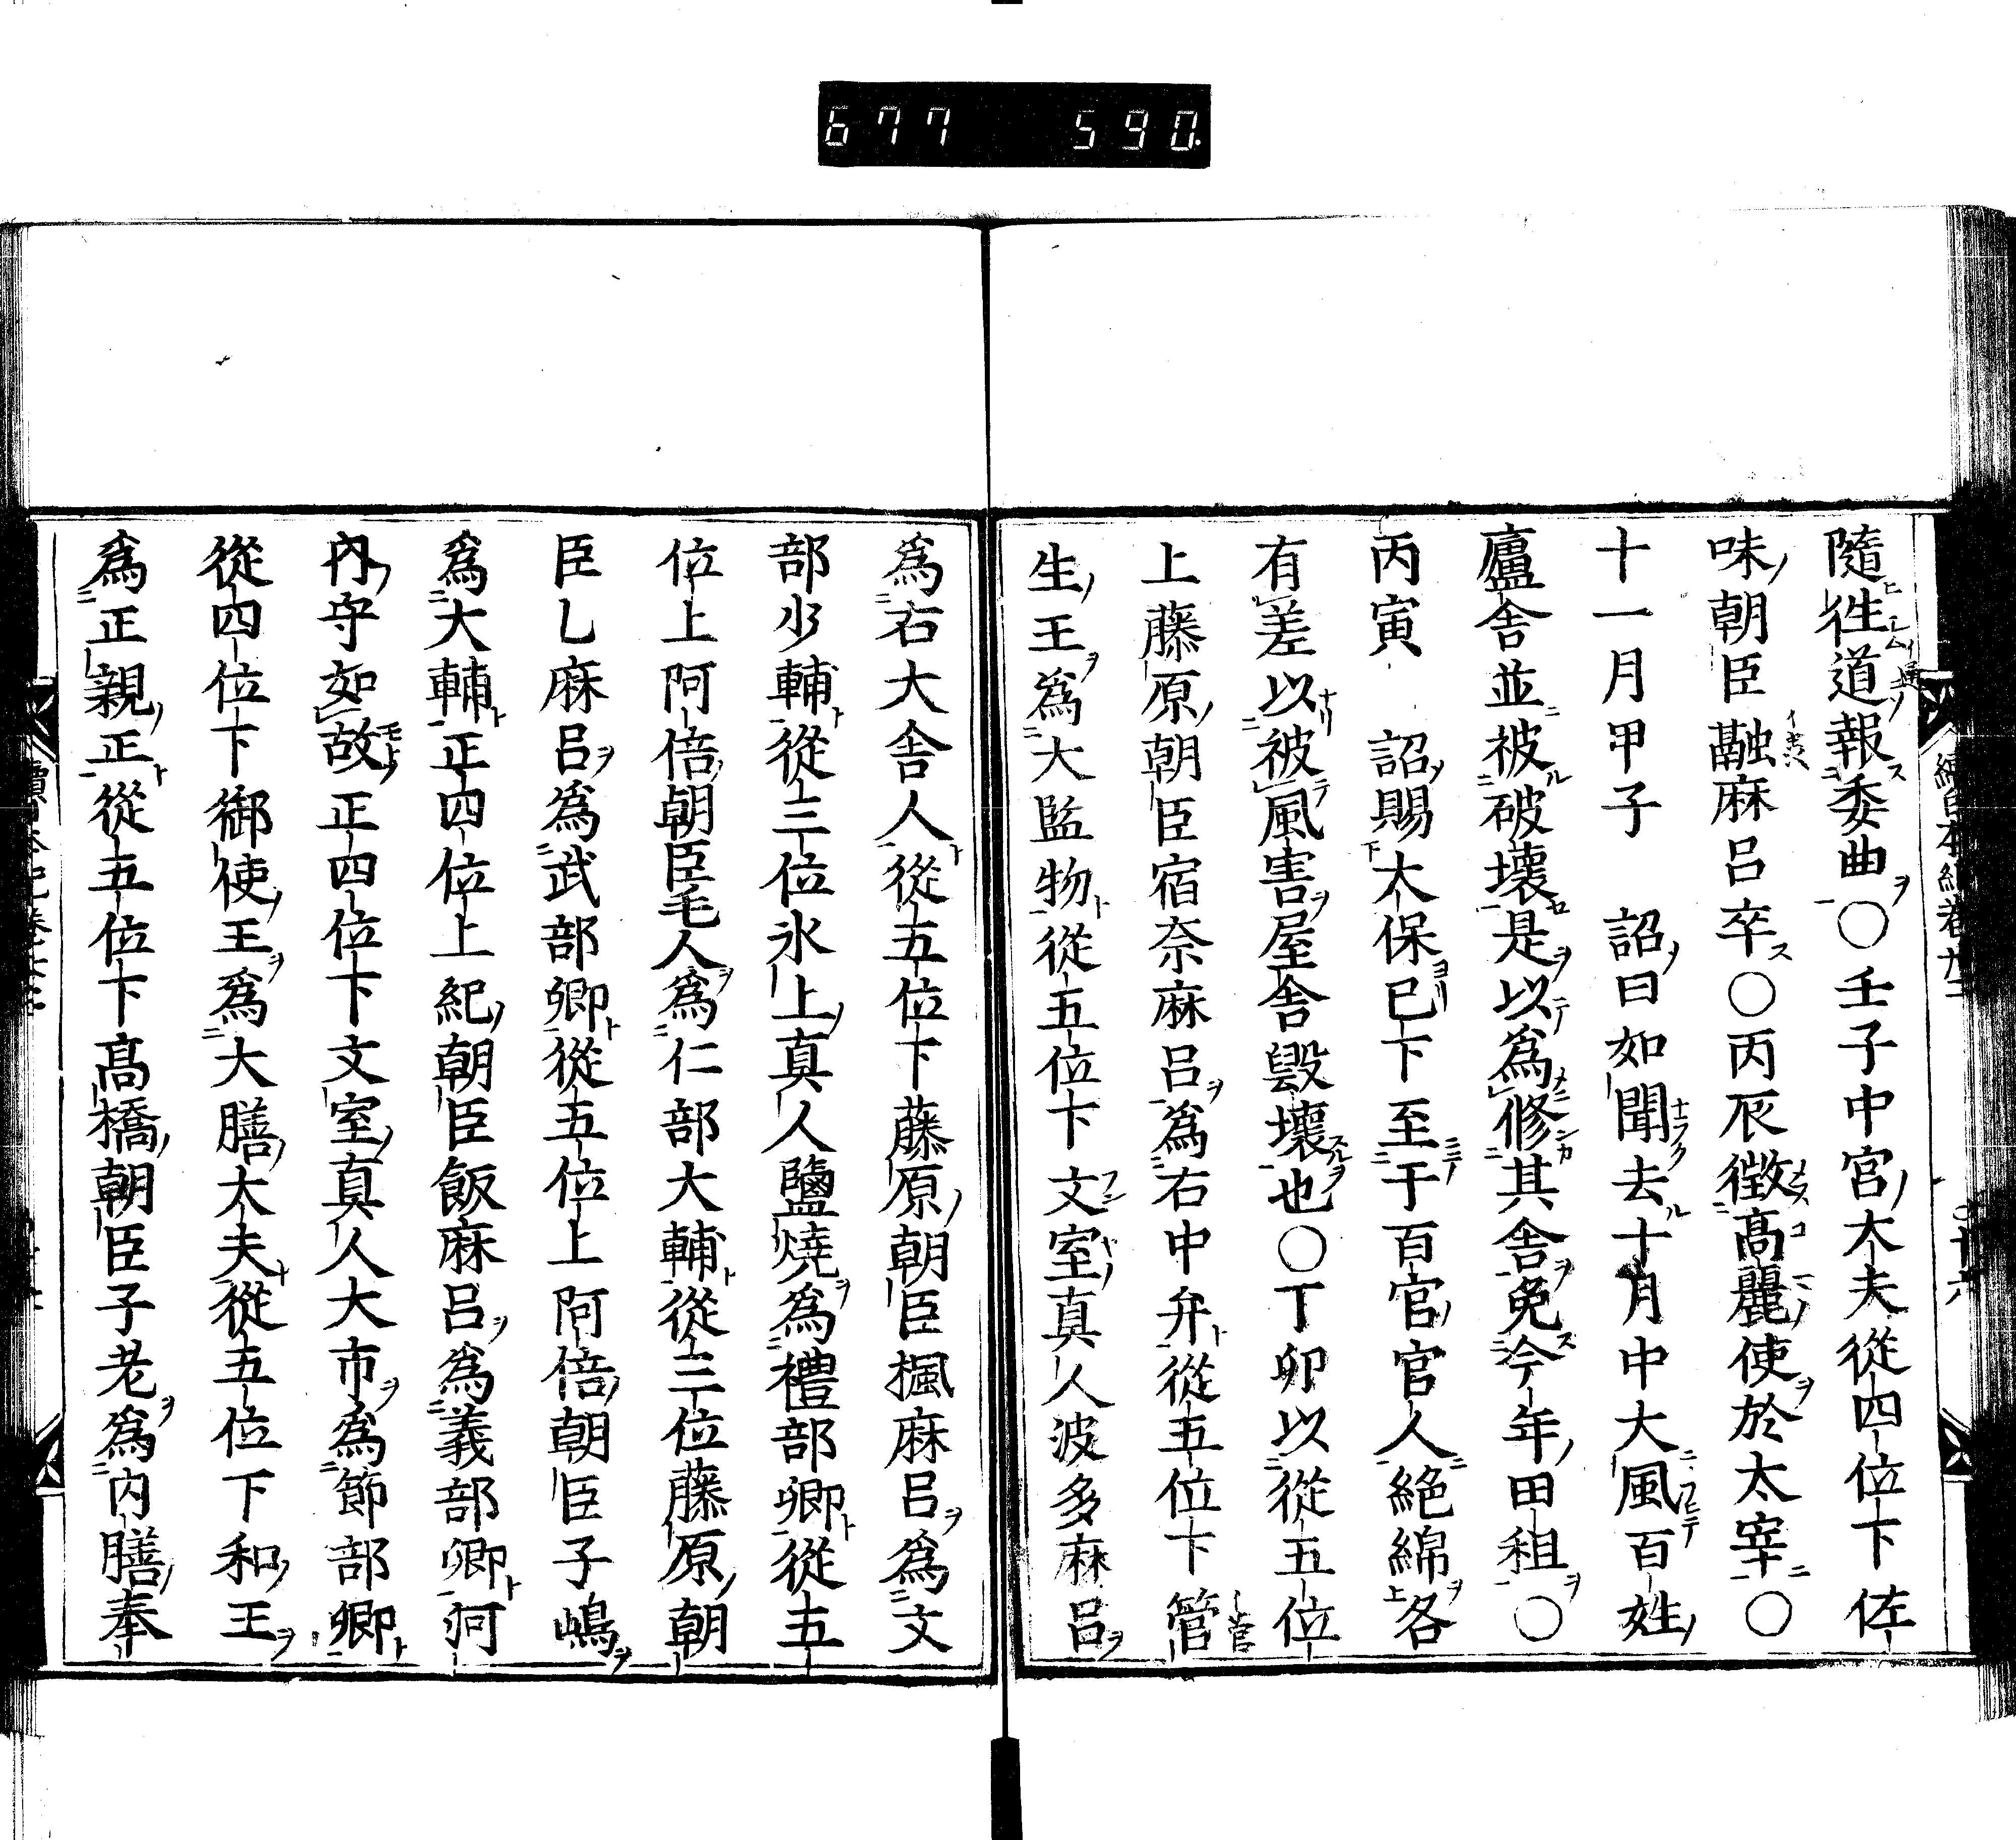 677 590.
隨徃道報委曲〇壬子中宮大夫從四位下佐
味朝臣虤麻呂卒〇丙辰徴髙麗使於太宰〇
十一月甲子 詔曰如聞去十月中大風百姓
廬舎並被破壊是以為修其舎免今年田租〇
丙寅 詔賜大保已下至于百官官人絁綿各
有差以被風害屋舎毀壊也〇丁卯以從五位
上藤原朝臣宿奈麻呂為右中弁從五位下管
生王為大監物從五位下文室真人波多麻呂
為右大舎人從五位下藤原朝臣楓麻呂為文
部少輔從三位氷上真人鹽燒為禮部卿從五
位上阿倍朝臣毛人為仁部大輔從三位藤原朝
臣乙麻呂為武部卿從五位上阿倍朝臣子嶋
為大輔正四位上紀朝臣飯麻呂為義部卿河
内守如故正四位下文室真人大市為節部卿
從四位下御使王為大膳大夫從五位下和王
為正親正從五位下髙橋朝臣子老為内膳奉